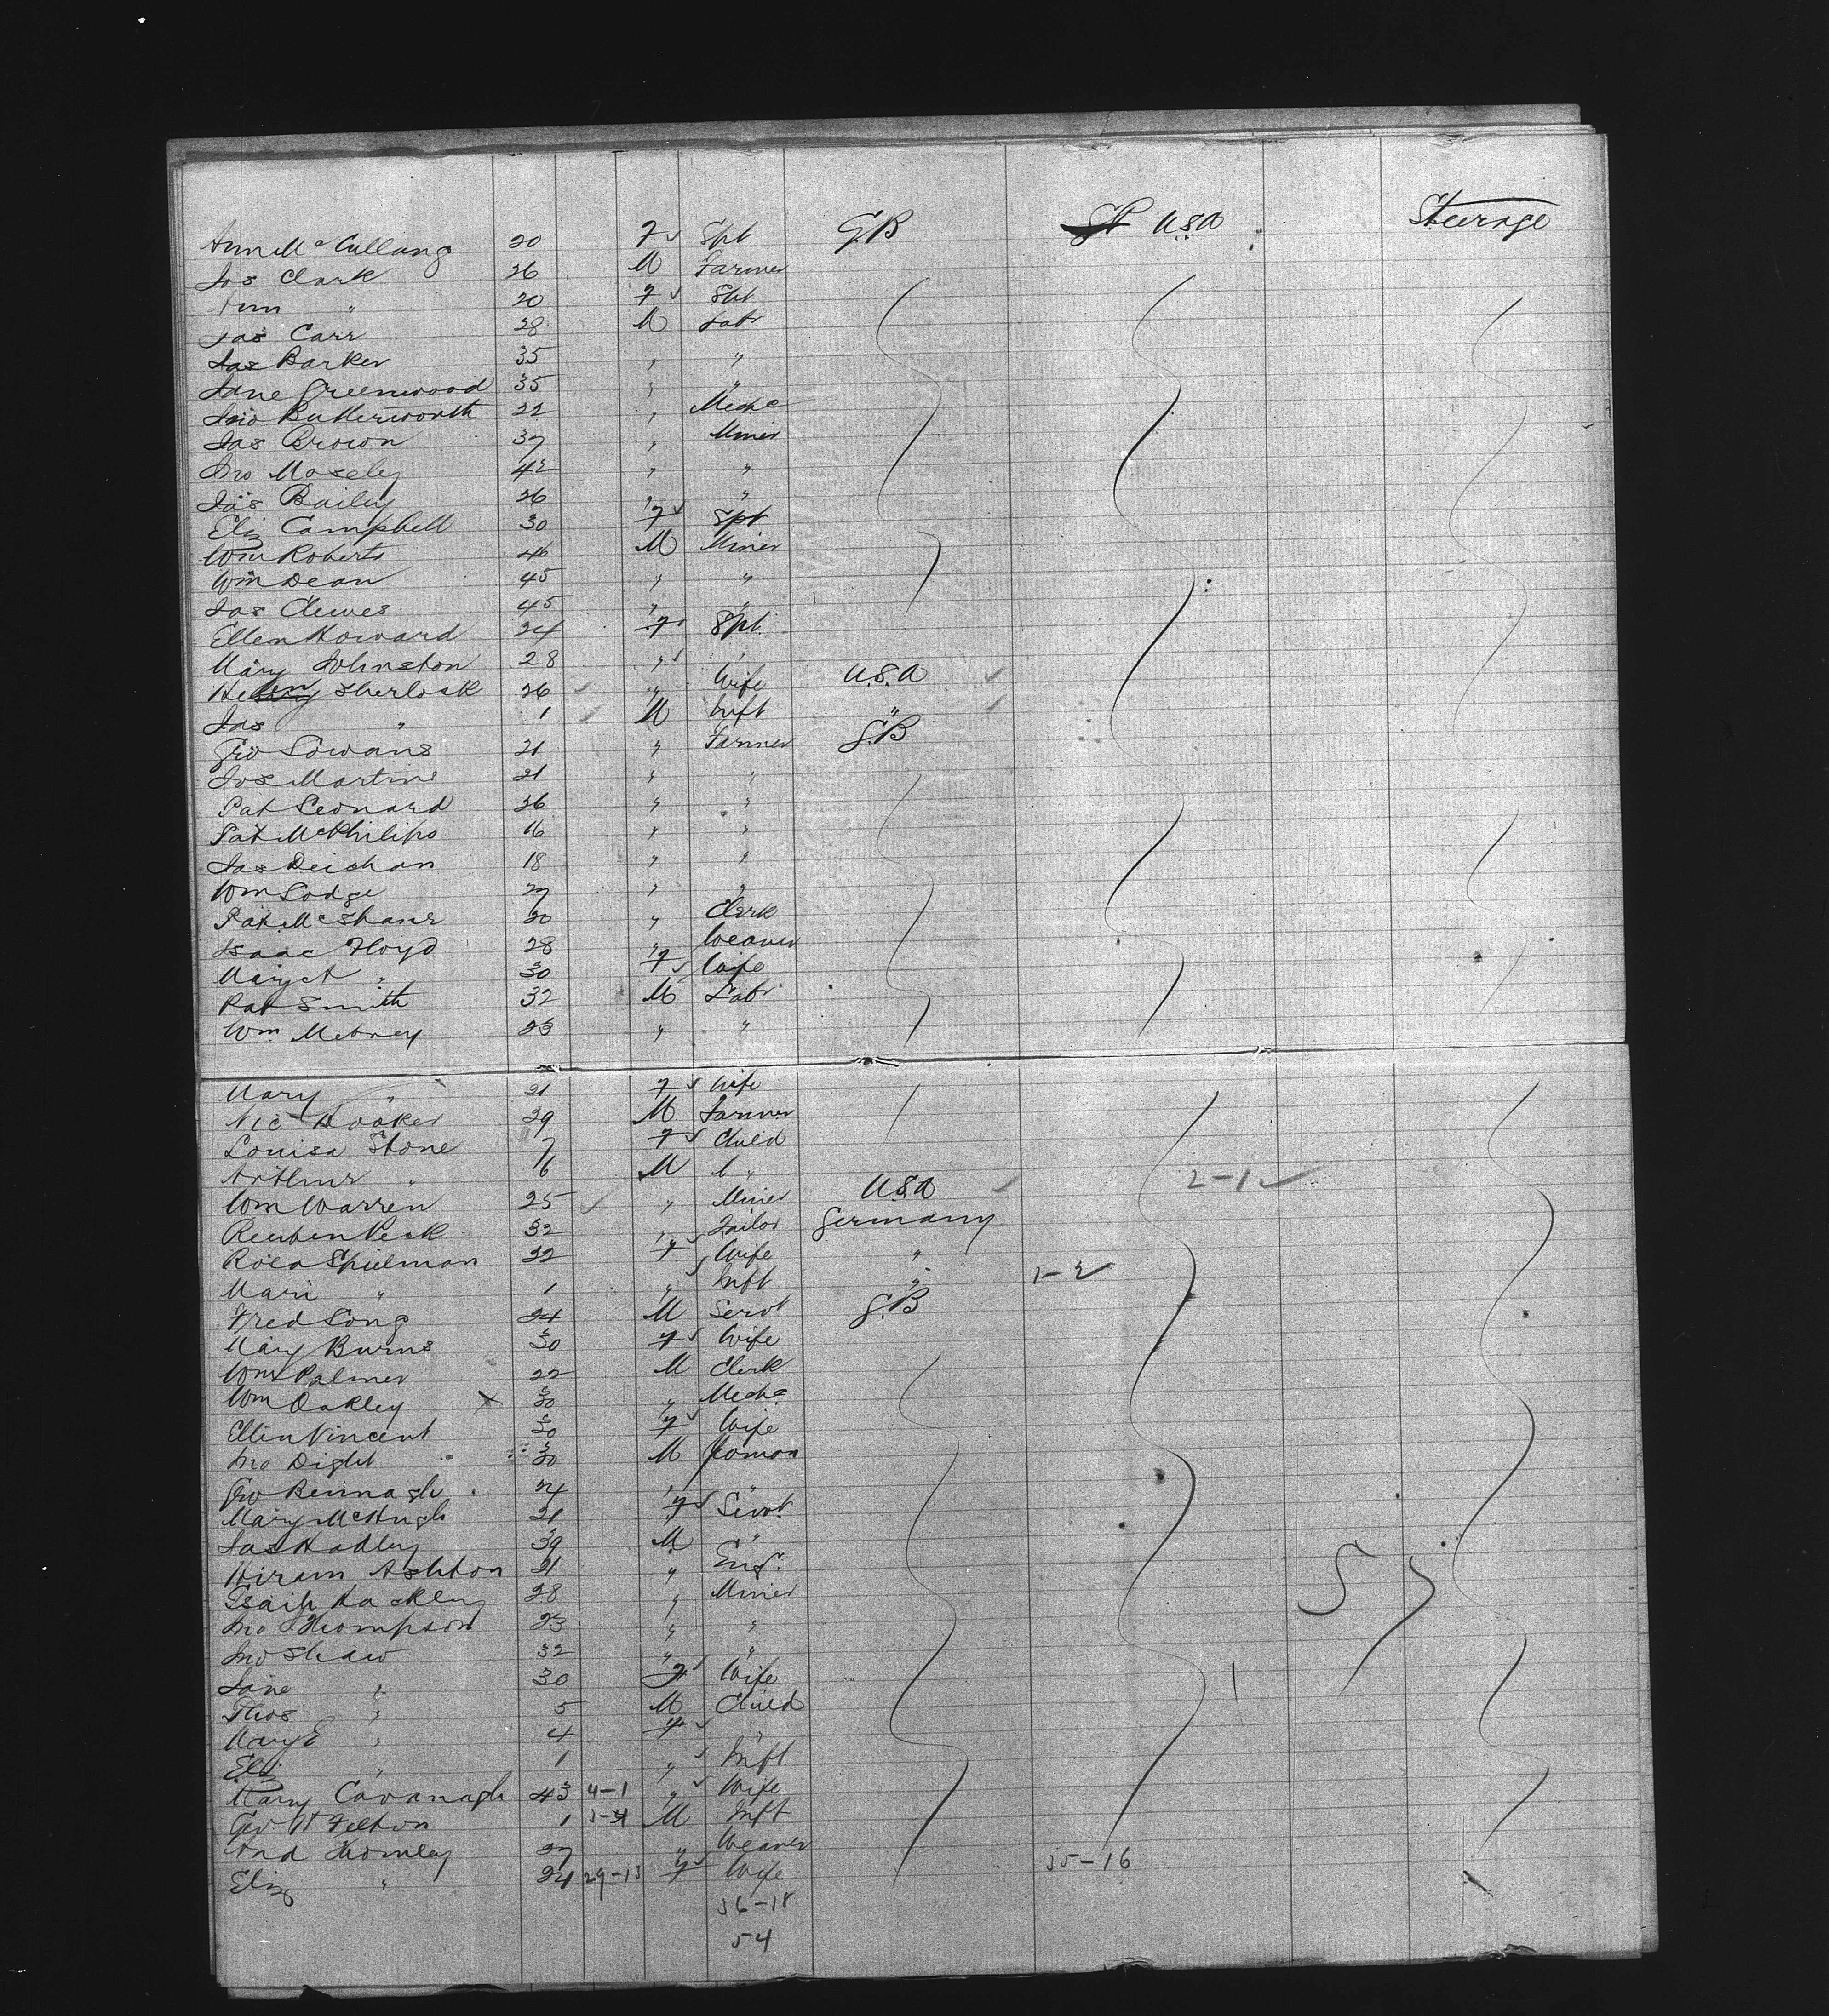 Ann McCullang 20 F Spt GB USA Steerage
Jos Clark 26 M Farmer
Ann " 20 F Spt
Jas Carr 28 M Labr
Jas Barker 35 " "
Jane Greenwood 35 " "
Jno Butterworth 22 " Mechc
Jas Brown 37 " Miner
Jno Moseley 42 " "
Jas Bailey 26 " "
Eliz Campbell 30 F Spt
Wm Roberts 46 M Miner
Wm Dean 45 " "
Jas Clewes 45 " "
Ellen Howard 24 F Spt
Mary Johnston 28 " "
Sherlock 26 " Wife U.S.A
Jas " 1 M Inft "
Geo Gowans 21 " Farmer G.B
Jos Martin 21 " "
Pat Leonard 26 " "
Pat McPhilips 16 " "
Jas Deighan 18 " "
Wm Lodge 27 " "
Pat McShane 20 " Clerk
Isaac Floyd 28 " Weaver
Margt " 30 F Wife
Pat Smith 32 M Labr
Wm 23 " "
Mary " 21 F Wife
Nic Hooker 29 M Farmer
Louisa Stone 7 F Child
Arthur " 6 M "
Wm Warren 25 " Miner USA 2-1
Reuben Peck 32 " Tailor Germany
Rosa Spielman 22 F Wife "
Mari " 1 " Inft " 1-2
Fred Long 24 M Servt G.B
Mary Burns 30 F Wife
Wm Palmer 22 M Clerk
Wm Oakley X 30 " Mechc
Ellin Vincent 30 F Wife
Jno Dight 30 M Yoman
Geo 24 " "
Mary McHugh 21 F Servt
Jas Hadley 39 M "
Hiram Ashton 21 " Eng.
Isaih Hackley 28 " Miner
Jno Thompson 23 " "
Jno Shaw 32 " "
Jane " 30 F Wife
Thos " 5 M Child
Mary E " 4 F "
Eliz " 1 " Inft
Mary Cavanagh 43 4-1 " Wife
Geo W Felton 1 M Inft
And Thomley 27 " Weaver
Eliz " 24 29-13 F Wife 35-16
36-18
54